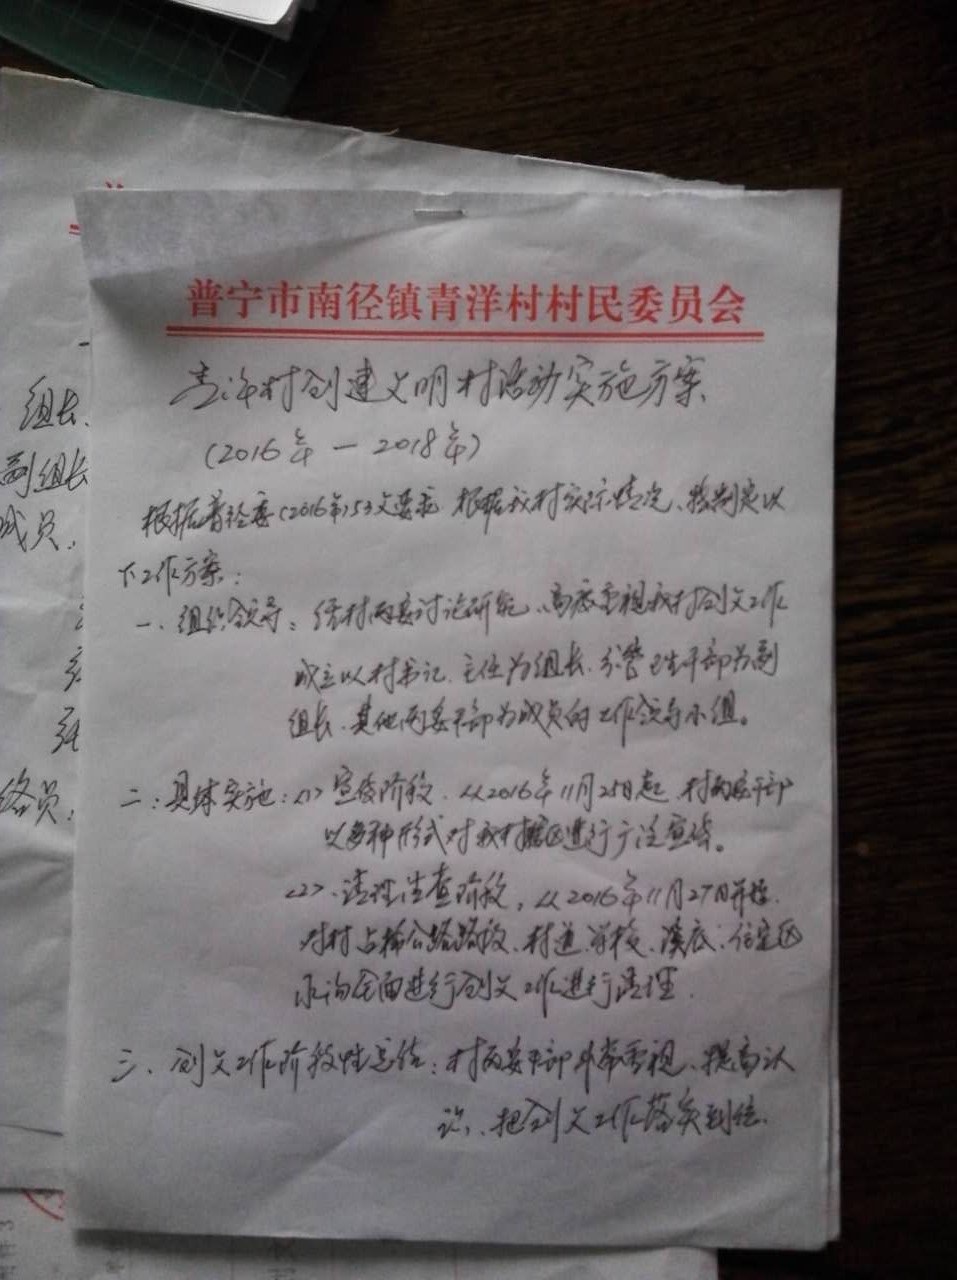 普宁市南径镇青洋村村民委员会
青洋村创建文明村活动实施方案
(2016年—2018年)
根据普径委(2016年)53文要求 根据我村实际情况、特制定以
下工作方案:
一、组织领导:经村两委讨论研究、高度重视我村创文工作
成立以村书记、主任为组长、分管卫生干部为副
组长、其他两委干部为成员的工作领导小组。
二:具体实施:<1>宣传阶段、从2016年11月25日起、村两委干部
以多种形式对我村进行广泛宣传。
<2>、清理阶段,从2016年11月27日开始
对村路段、村道、学校、溪底、住宅区
水沟全面进行创文工作进行清理.
三、创文工作阶段性总结:村两委干部非常重视、提高认
识、把创文工作落实到位.
组长.
副组长
成员.
络员.